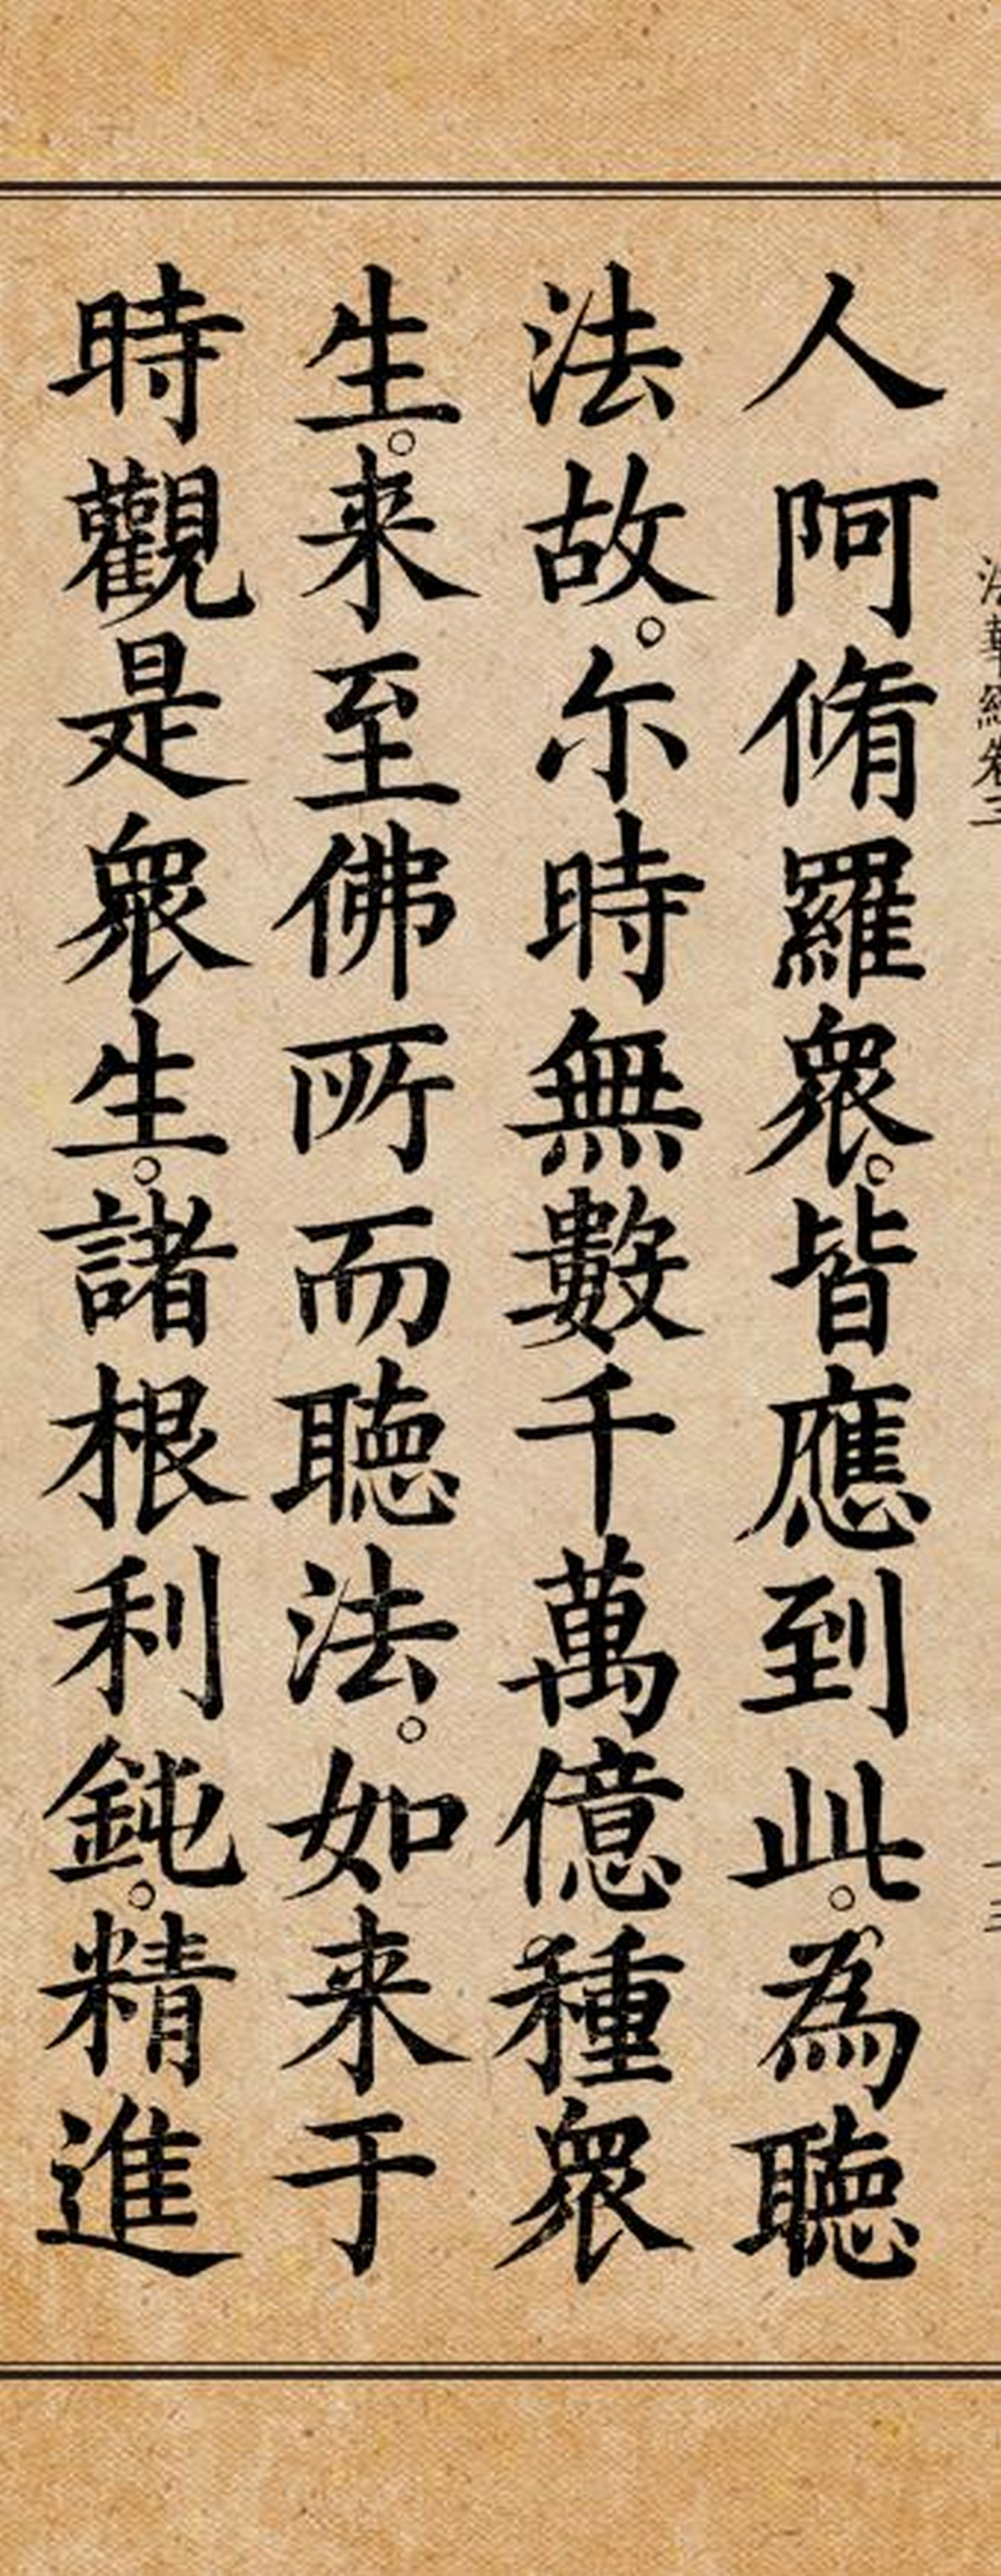 法華經卷三
人阿脩羅衆。皆應到此。為聽
法故。尒時無數千萬億種衆
生。来至佛所而聽法。如来于
時觀是衆生。諸根利鈍。精進